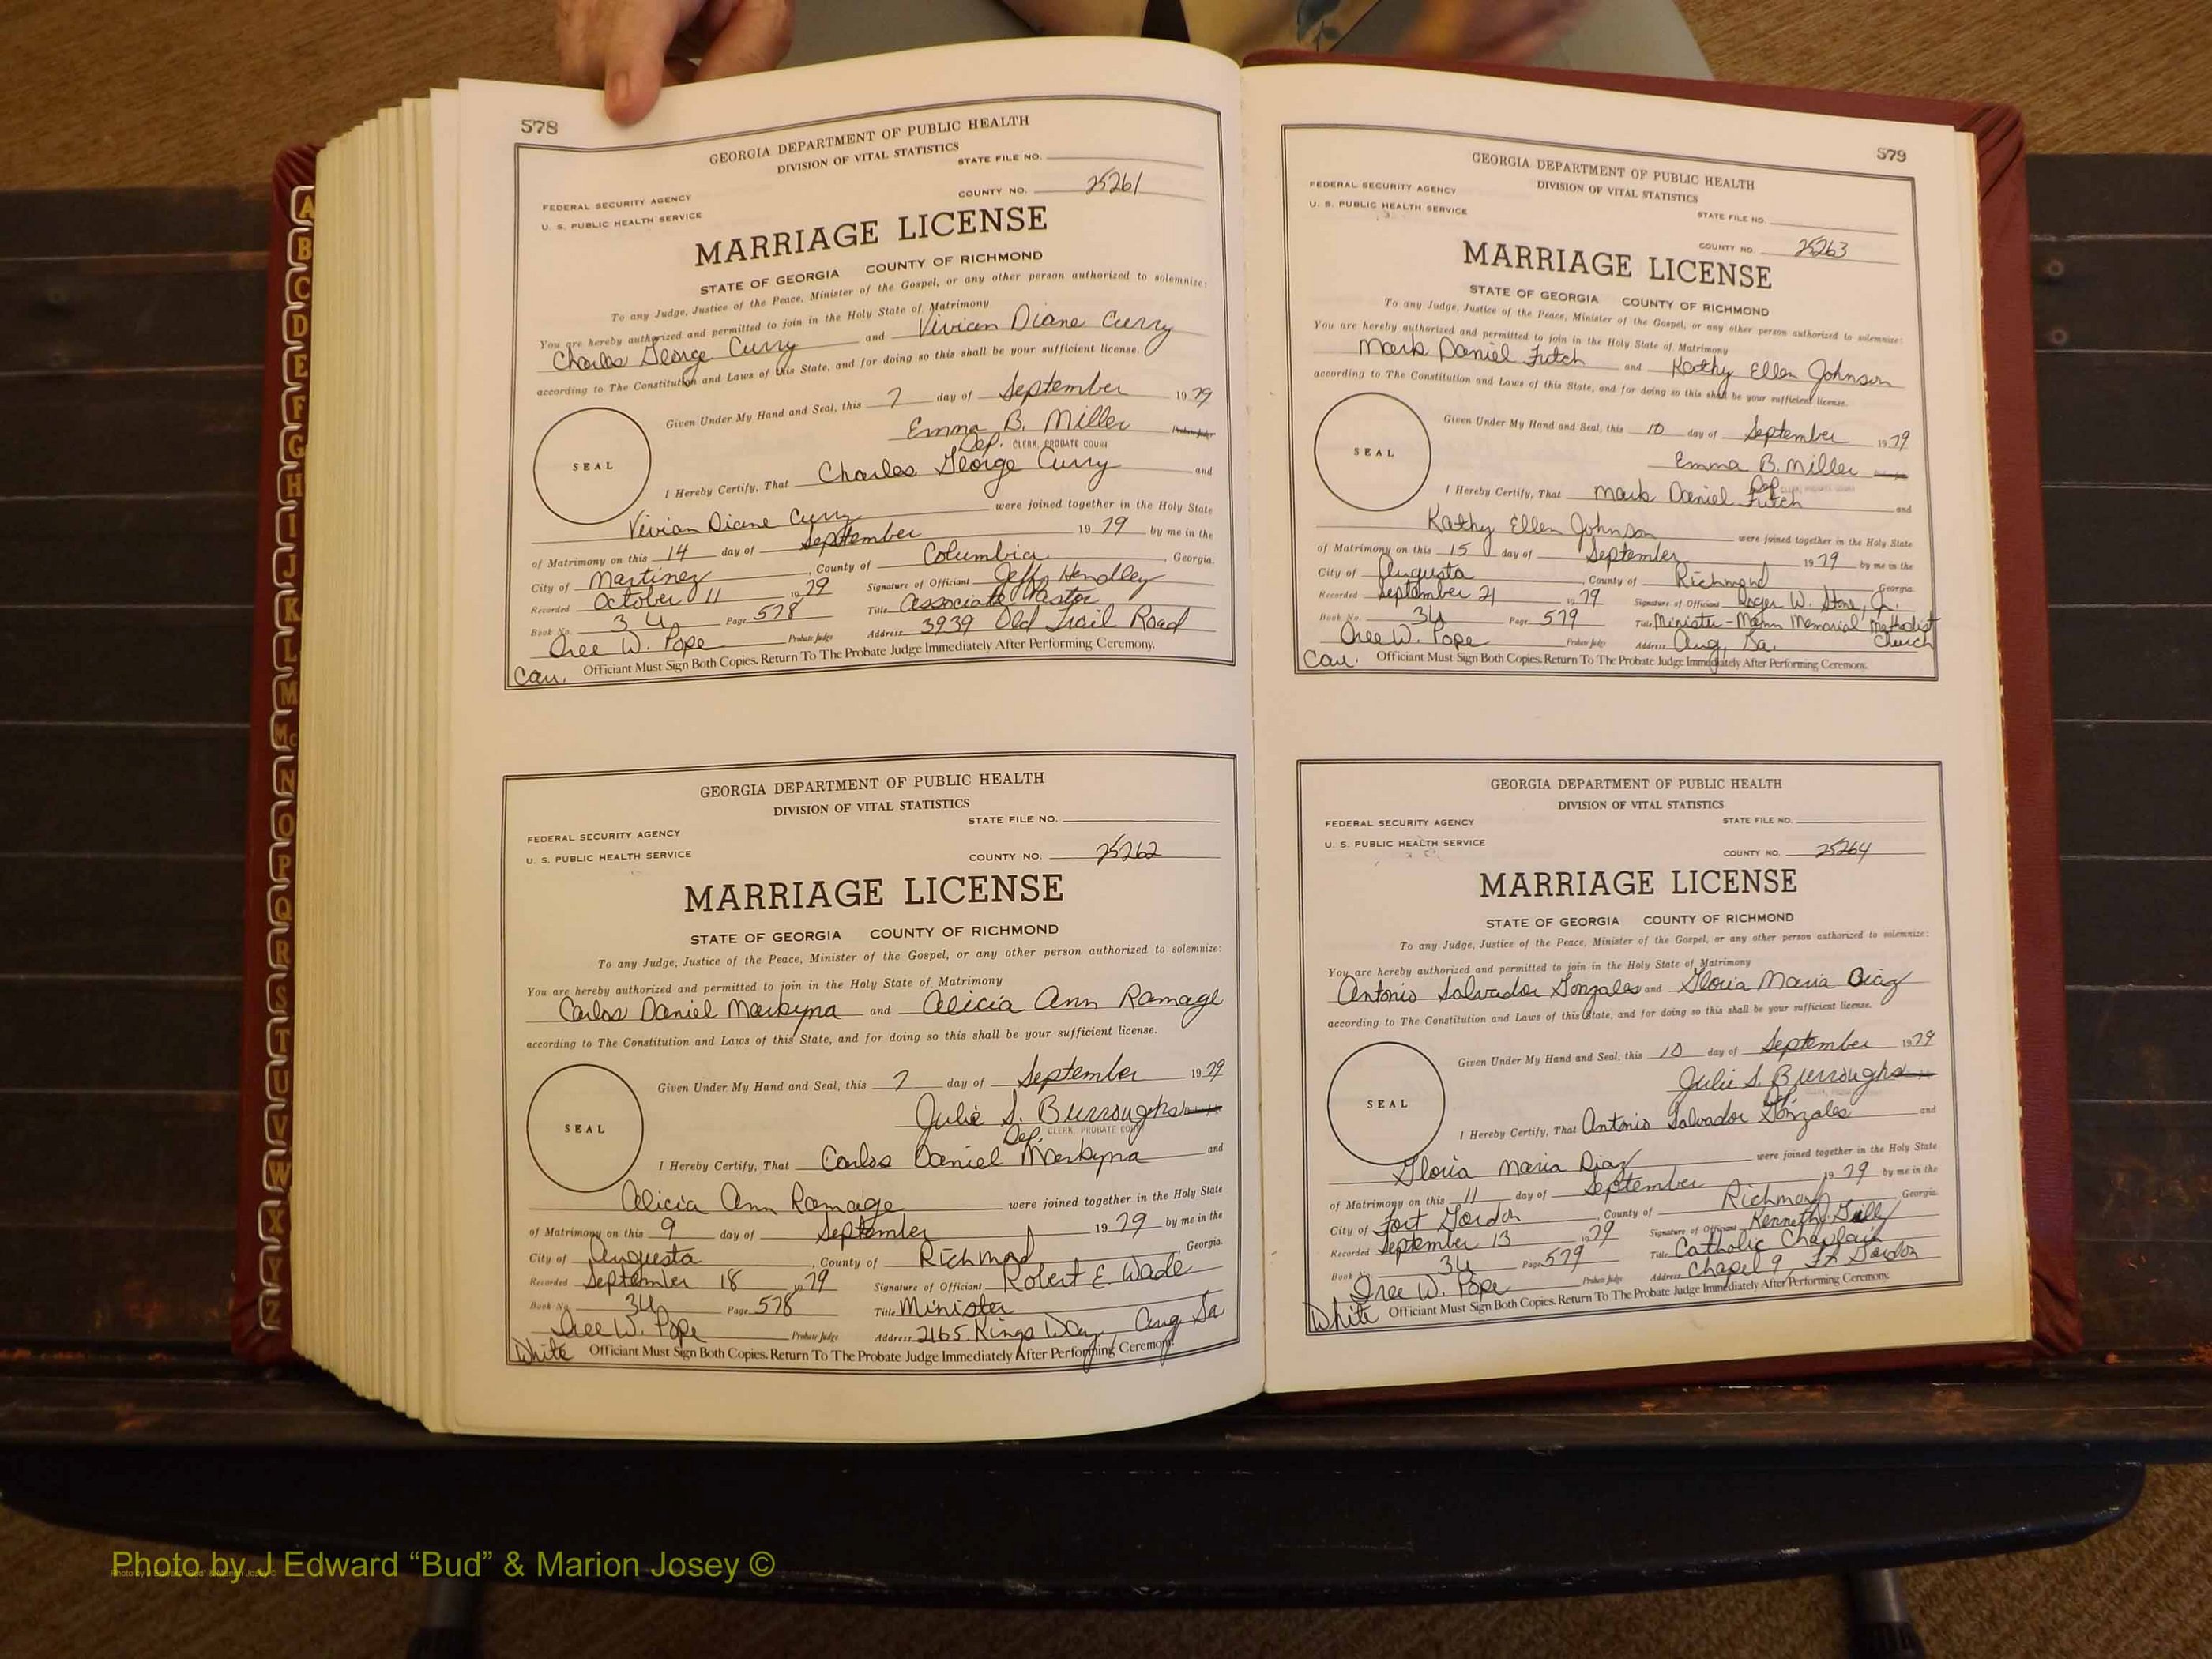 578
GEORGIA DEPARTMENT OF PUBLIC HEALTH
DIVISION OF VITAL STATISTICS
STATE FILE NO.
FEDERAL SECURITY AGENCY
U. S. PUBLIC HEALTH SERVICE
COUNTY NO. 25261
MARRIAGE LICENSE
STATE OF GEORGIA COUNTY OF RICHMOND
To any Judge, Justice of the Peace, Minister of the Gospel, or any other person authorized to solemnize:
You are hereby authorized and permitted to join in the Holy State of Matrimony
Charles George Curry and Vivian Diane Curry
according to The Constitution and Laws of this State, and for doing so this shall be your sufficient license.
Given Under My Hand and Seal, this 7 day of September 1979
Emma B. Miller Probate Judge
Dep. CLERK, PROBATE COURT
SEAL
I Hereby Certify, That Charles George Curry and
Vivian Diane Curry were joined together in the Holy State
of Matrimony on this 14 day of September 1979 by me in the
City of Martinez, County of Columbia, Georgia.
Recorded October 11 1979 Signature of Officiant Jeff Hendley
Book No. 34 Page 578 Title Associate Pastor
Oree W. Pope Probate Judge Address 3939 Old Trail Road
Cau. Officiant Must Sign Both Copies. Return To The Probate Judge Immediately After Performing Ceremony.
GEORGIA DEPARTMENT OF PUBLIC HEALTH
DIVISION OF VITAL STATISTICS
STATE FILE NO.
FEDERAL SECURITY AGENCY
U. S. PUBLIC HEALTH SERVICE
COUNTY NO. 25262
MARRIAGE LICENSE
STATE OF GEORGIA COUNTY OF RICHMOND
To any Judge, Justice of the Peace, Minister of the Gospel, or any other person authorized to solemnize:
You are hereby authorized and permitted to join in the Holy State of Matrimony
Carlos Daniel Markyna and Alicia Ann Ramage
according to The Constitution and Laws of this State, and for doing so this shall be your sufficient license.
Given Under My Hand and Seal, this 7 day of September 1979
Julie S. Burroughs
Dep. CLERK, PROBATE COURT
SEAL
I Hereby Certify, That Carlos Daniel Markyna and
Alicia Ann Ramage were joined together in the Holy State
of Matrimony on this 9 day of September 1979 by me in the
City of Augusta, County of Richmond, Georgia.
Recorded September 18 1979 Signature of Officiant Robert E. Wade
Book No. 34 Page 578 Title Minister
Oree W. Pope Probate Judge Address 2165 Kings Way, Aug Ga
White Officiant Must Sign Both Copies. Return To The Probate Judge Immediately After Performing Ceremony.
579
GEORGIA DEPARTMENT OF PUBLIC HEALTH
DIVISION OF VITAL STATISTICS
FEDERAL SECURITY AGENCY
U. S. PUBLIC HEALTH SERVICE
STATE FILE NO.
COUNTY NO. 25263
MARRIAGE LICENSE
STATE OF GEORGIA COUNTY OF RICHMOND
To any Judge, Justice of the Peace, Minister of the Gospel, or any other person authorized to solemnize:
You are hereby authorized and permitted to join in the Holy State of Matrimony
Mark Daniel Futch and Kathy Ellen Johnson
according to The Constitution and Laws of this State, and for doing so this shall be your sufficient license.
Given Under My Hand and Seal, this 10 day of September 1979
Emma B. Miller
Dep. CLERK, PROBATE COURT
SEAL
I Hereby Certify, That Mark Daniel Futch and
Kathy Ellen Johnson were joined together in the Holy State
of Matrimony on this 15 day of September 1979 by me in the
City of Augusta, County of Richmond Georgia.
Recorded September 21 1979 Signature of Officiant Roger W. Stone, Jr.
Book No. 34 Page 579 Title Minister - Mann Memorial Methodist Church
Oree W. Pope Probate Judge Address Aug, Ga.
Cau. Officiant Must Sign Both Copies. Return To The Probate Judge Immediately After Performing Ceremony.
GEORGIA DEPARTMENT OF PUBLIC HEALTH
DIVISION OF VITAL STATISTICS
FEDERAL SECURITY AGENCY
STATE FILE NO.
U. S. PUBLIC HEALTH SERVICE
COUNTY NO. 25264
MARRIAGE LICENSE
STATE OF GEORGIA COUNTY OF RICHMOND
To any Judge, Justice of the Peace, Minister of the Gospel, or any other person authorized to solemnize:
You are hereby authorized and permitted to join in the Holy State of Matrimony
Antonio Salvador Gonzales and Gloria Maria Diaz
according to The Constitution and Laws of this State, and for doing so this shall be your sufficient license.
Given Under My Hand and Seal, this 10 day of September 1979
Julie S. Burroughs
SEAL
I Hereby Certify, That Antonio Salvador Gonzales and
Gloria Maria Diaz were joined together in the Holy State
of Matrimony on this 11 day of September 1979 by me in the
City of Fort Gordon, County of Richmond Georgia.
Recorded September 13 1979 Signature of Officiant Kenneth Gill
Book No. 34 Page 579 Title Catholic Chaplain
Oree W. Pope Probate Judge Address Chapel 9, Ft Gordon
White Officiant Must Sign Both Copies. Return To The Probate Judge Immediately After Performing Ceremony.
A
B
C
D
E
F
G
H
I
J
K
L
M
Mc
N
O
P
Q
R
S
T
U
V
W
X
Y
Z
Photo by J Edward “Bud” & Marion Josey ©
Photo by J Edward “Bud” & Marion Josey ©